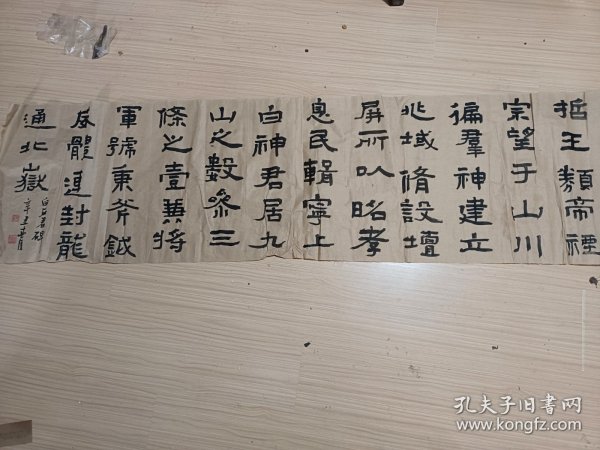 哲王類帝禋
宗望于山川
徧羣神建立
兆域脩設壇
屏所以昭孝
息民輯寧上
白神君居九
山之數參三
條之壹兼將
軍號秉斧鉞
體連封龍
通北嶽
白石君碑
孔夫子旧书网
www.kongfz.com